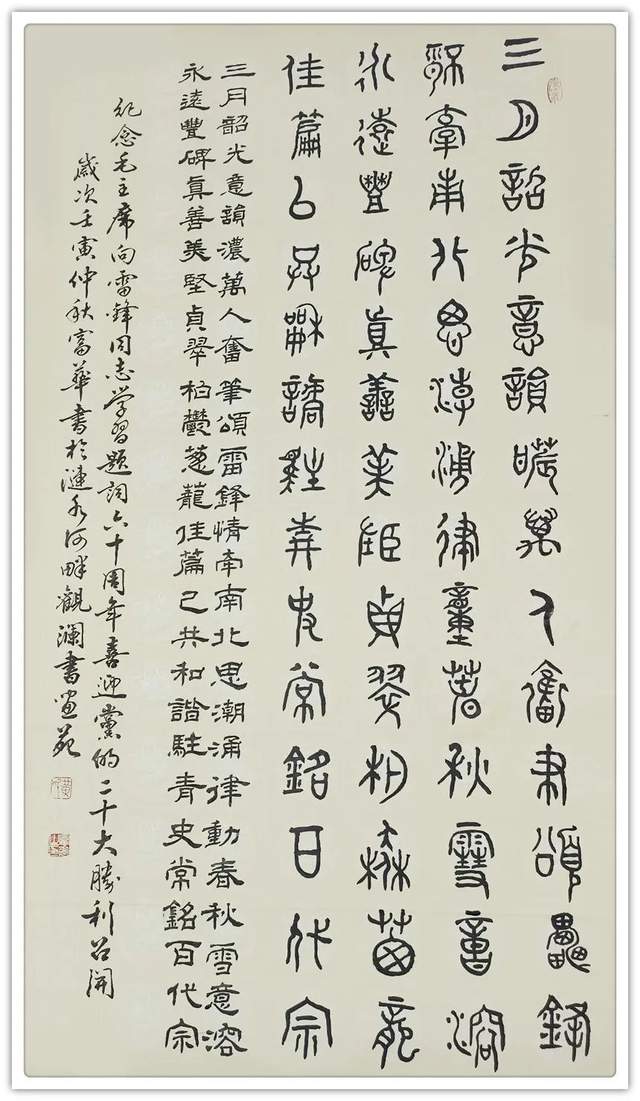 三月韶光意韻濃萬人奮筆頌雷鋒
情牽南北思潮涌律動春秋雪意溶
永遠豐碑眞善美堅貞翠柏鬱蔥蘢
佳篇已共和諧駐青史常銘百代宗
三月韶光意韻濃萬人奮筆頌雷鋒情牽南北思潮涌律動春秋雪意溶
永遠豐碑眞善美堅貞翠柏鬱蔥蘢佳篇已共和諧駐青史常銘百代宗
紀念毛主席向雷鋒同志学習題詞六十周年喜迎黨的二十大勝利召開
歲次壬寅仲秋富華書於漣水河畔觀瀾書画苑